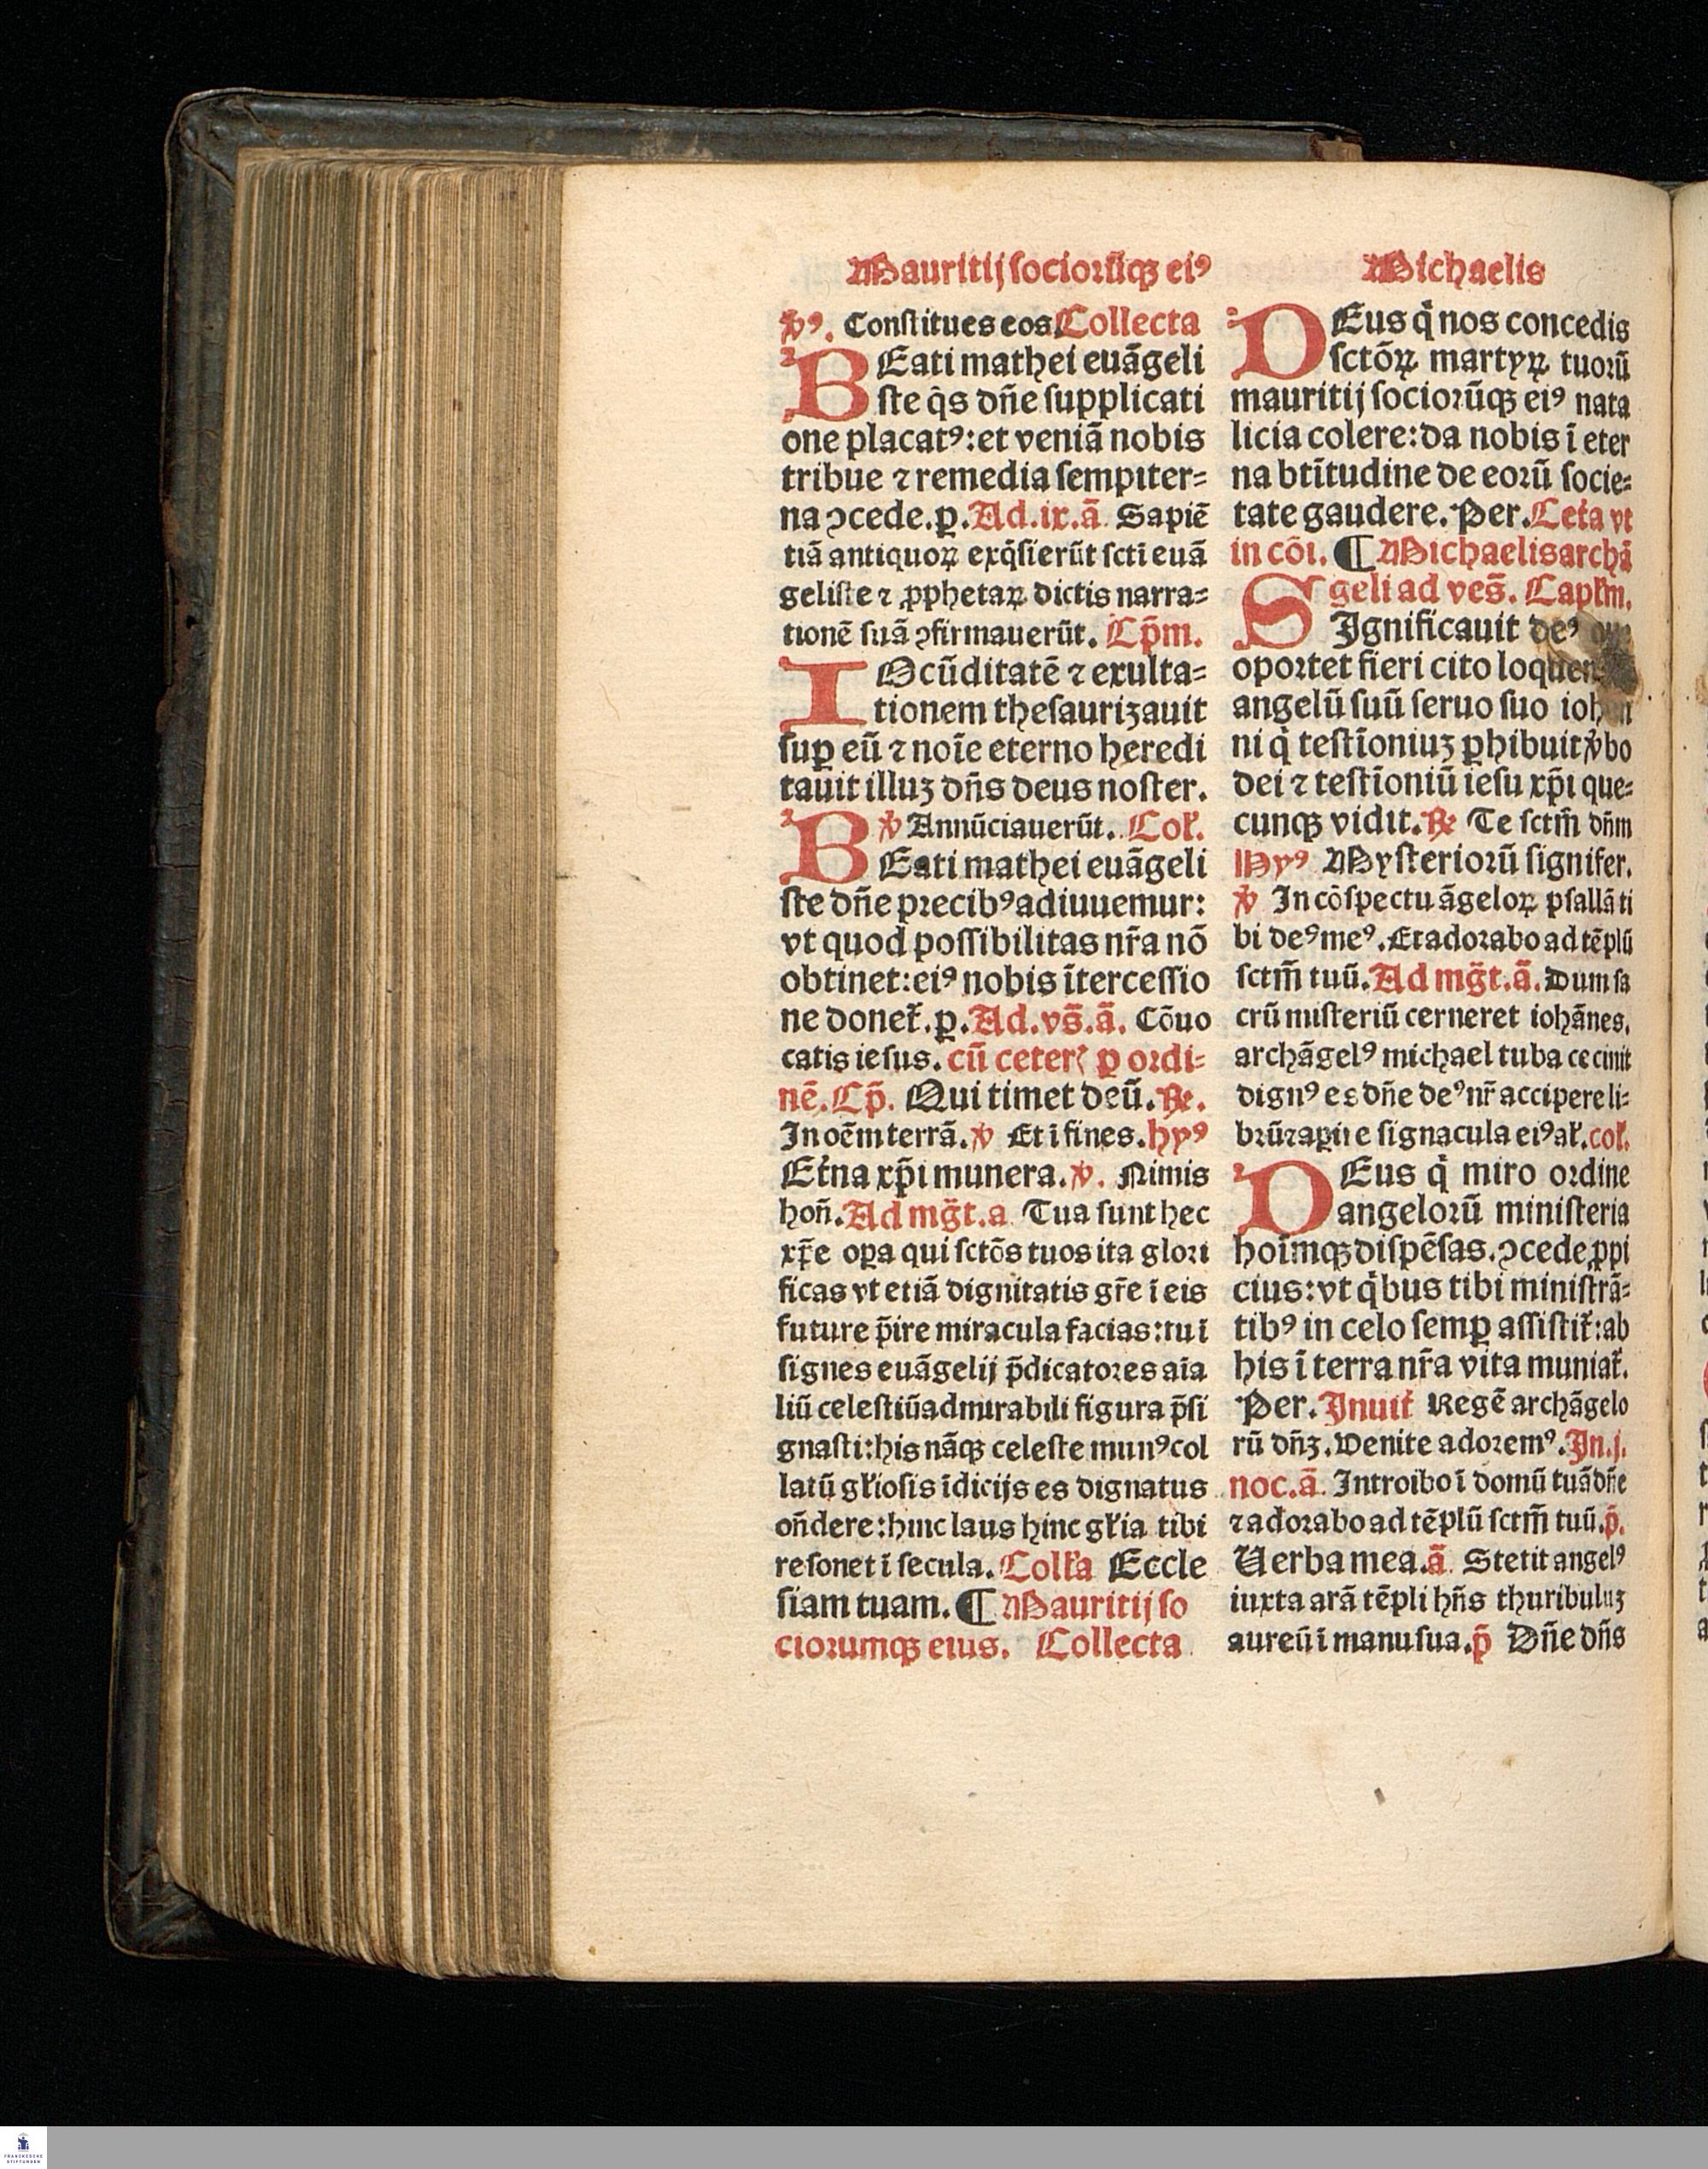 Mauritij sociorūqꝫ eiꝰ
℣ꝰ. Constitues eos. Collecta
BEati mathei euāgeli
ste q̄s dn̄e supplicati
one placatꝰ: et veniā nobis
tribue ⁊ remedia sempiter⸗
na ꝯcede. ꝑ. Ad. ix. ā. Sapiē
tiā antiquoꝝ exq̄sierūt scti euā
geliste ⁊ ꝓphetaꝝ dictis narra⸗
tionē suā ꝯfirmauerūt. Cp̄m.
IOcūditatē ⁊ exulta⸗
tionem thesaurizauit
suꝑ eū ⁊ noīe eterno heredi
tauit illuꝫ dn̄s deus noster.
℣ Annūciauerūt. Coƚ.
BEati mathei euāgeli
ste dn̄e precibꝰ adiuuemur:
vt quod possibilitas nr̄a nō
obtinet: eiꝰ nobis ītercessio
ne doneť. ꝑ. Ad. vs̄. ā. Cōuo
catis iesus. cū ceterꝭ ꝑ ordi⸗
nē. Cp̄. Qui timet deū. ℞.
In oēm terrā. ℣ Et ī fines. hyꝰ
Et̓na xp̄i munera. ℣. Nimis
hon̄. Ad mg̅t. a. Tua sunt hec
xp̄e oꝑa qui sctōs tuos ita glori
ficas vt etiā dignitatis gr̄e ī eis
future p̄ire miracula facias: tu ī
signes euāgelij p̄dicatores aīa
liū celestiū admirabili figura p̄si
gnasti: his nāqꝫ celeste munꝰ col
latū gƚiosis īdicijs es dignatus
on̄dere: hinc laus hinc gƚia tibi
resonet ī secula. Colƚa Eccle
siam tuam. ¶ Mauritij so
ciorumqꝫ eius. Collecta
Michaelis
DEus q̇ nos concedis
sctōꝝ martyꝝ tuorū
mauritij sociorūqꝫ eiꝰ nata
licia colere: da nobis ī eter
na btītudine de eorū socie⸗
tate gaudere. Per. Cet̓a vt
in cōi. ¶ Michaelis archā
geli ad ves̄. Capƚm.
SIgnificauit deꝰ
oportet fieri cito loquen
angelū suū seruo suo ioh
ni q̇ testīoniuꝫ ꝑhibuit ℣bo
dei ⁊ testīoniū iesu xp̄i que⸗
cunqꝫ vidit. ℞ Te sctm̄ dn̄m
Hyꝰ Mysteriorū signifer.
℣ In cōspectu āgeloꝝ psallā ti
bi deꝰ meꝰ. Et adorabo ad tēplū
sctm̄ tuū. Ad mg̅t. ā. Dum sa
crū misteriū cerneret iohānes.
archāgelꝰ michael tuba cecinit
dignꝰ es dn̄e deꝰ nr̄ accipere li⸗
brū ⁊ aꝑire signacula eiꝰ aƚ. coƚ.
DEus q̇ miro ordine
angelorū ministeria
hoīmqꝫ dispēsas. ꝯcede ꝓpi
cius: vt q̇bus tibi ministrā⸗
tibꝰ in celo semꝑ assistiť: ab
his ī terra nr̄a vita muniať.
Per. Inuiť Regē archāgelo
rū dn̄ꝫ. Venite adoremꝰ. In. j.
noc. ā. Introibo ī domū tuā dn̄e
⁊ adorabo ad tēplū sctm̄ tuū. p̄.
Uerba mea. ā Stetit angelꝰ
iuxta arā tēpli hn̄s thuribuluꝫ
aureū ī manu sua. p̄ Dn̄e dn̄s
FRANCKESCHE
STIFTUNGEN